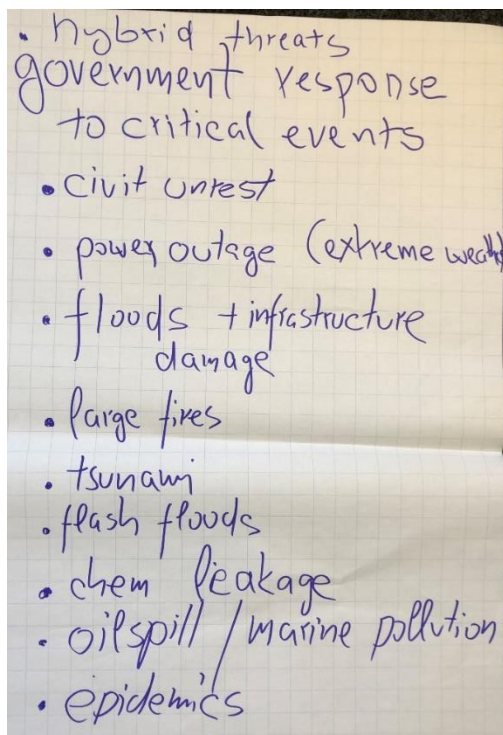 • hybrid threats
government response
to critical events
• civit unrest
• power outage (extreme weath
• floods + infrastructure
damage
• large fires
• tsunami
• flash floods
• chem leakage
• oilspill / marine pollution
• epidemics